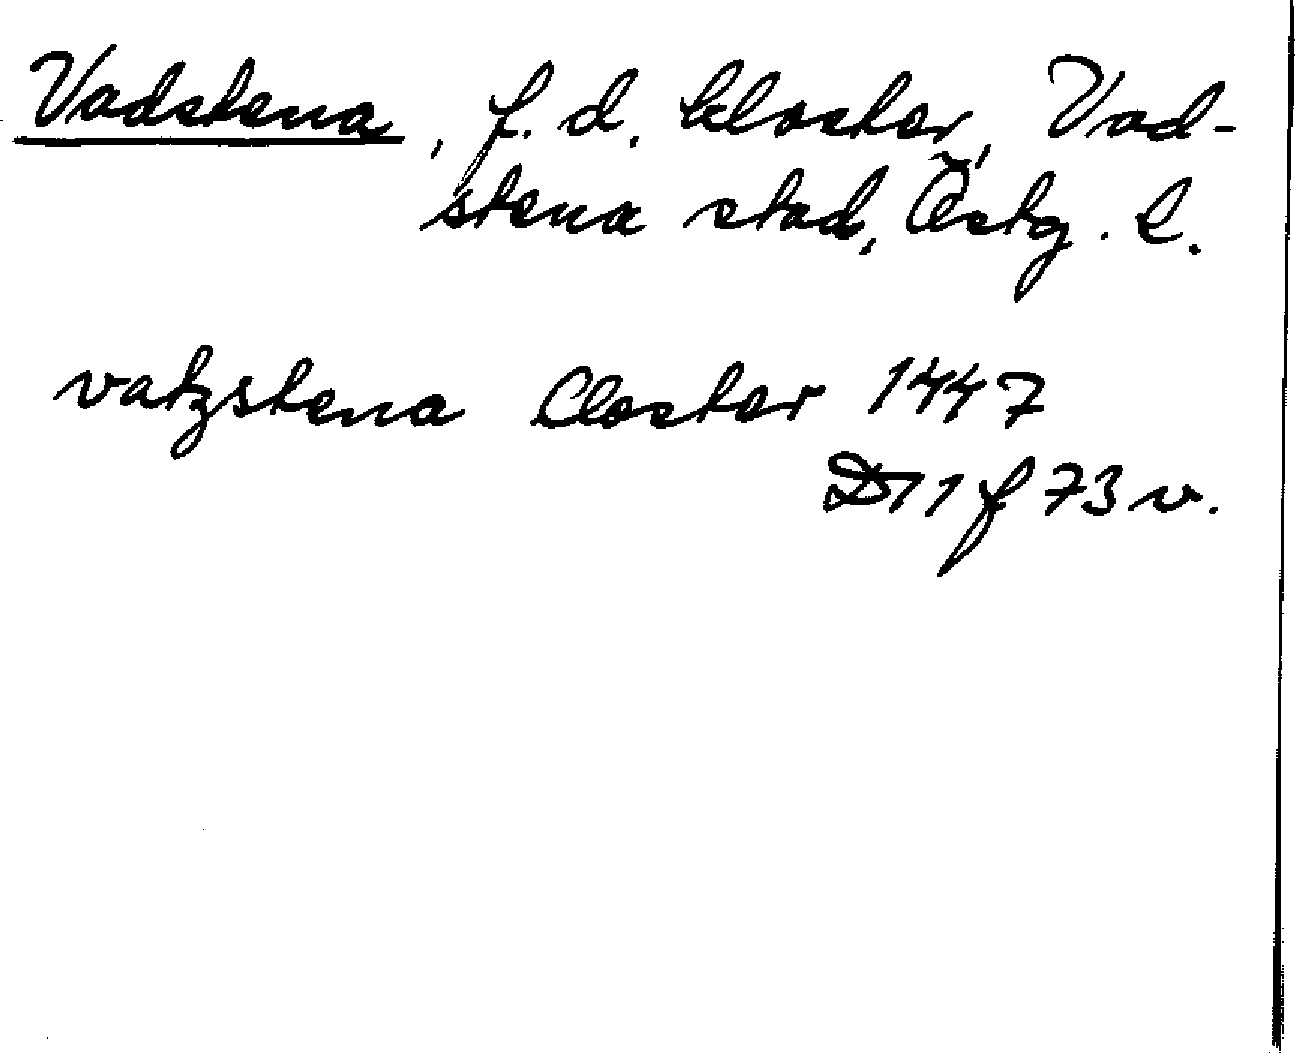 Vadstena, f. d. kloster, Vad-
stena stad, Östg. l.
vatzstena Closter 1447
D 11 f 73 v.